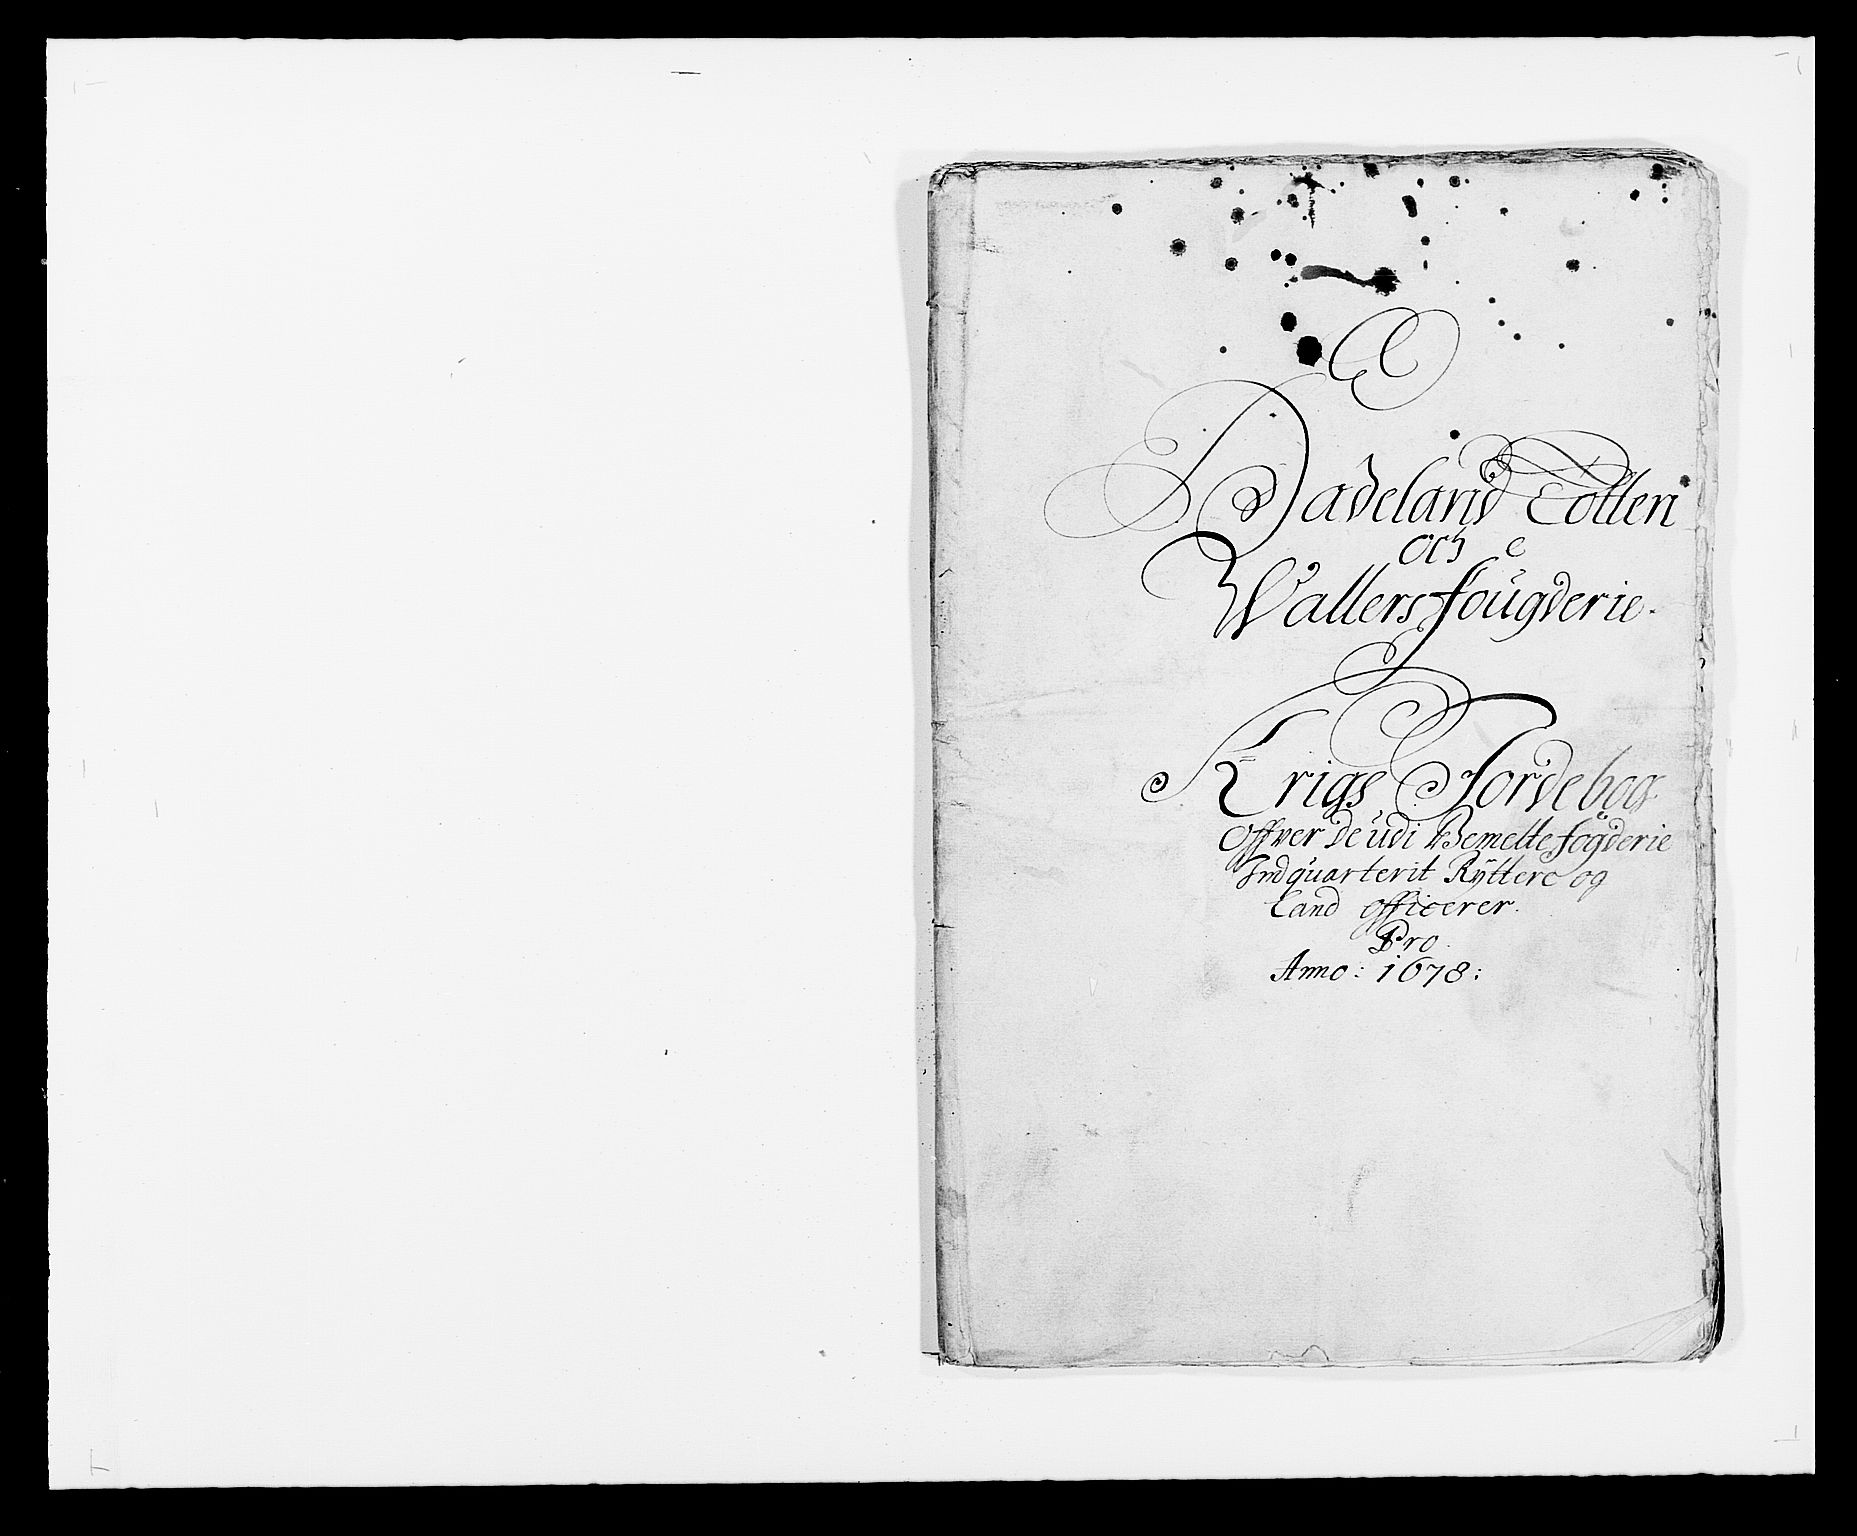 Hadeland Totten
och
Walders fougderie.
Krigs Jordebog
offver de udi Bemelte fogderie
Indquarterit Ryttere og
Land officerer.
Pro.
Anno: 1678: